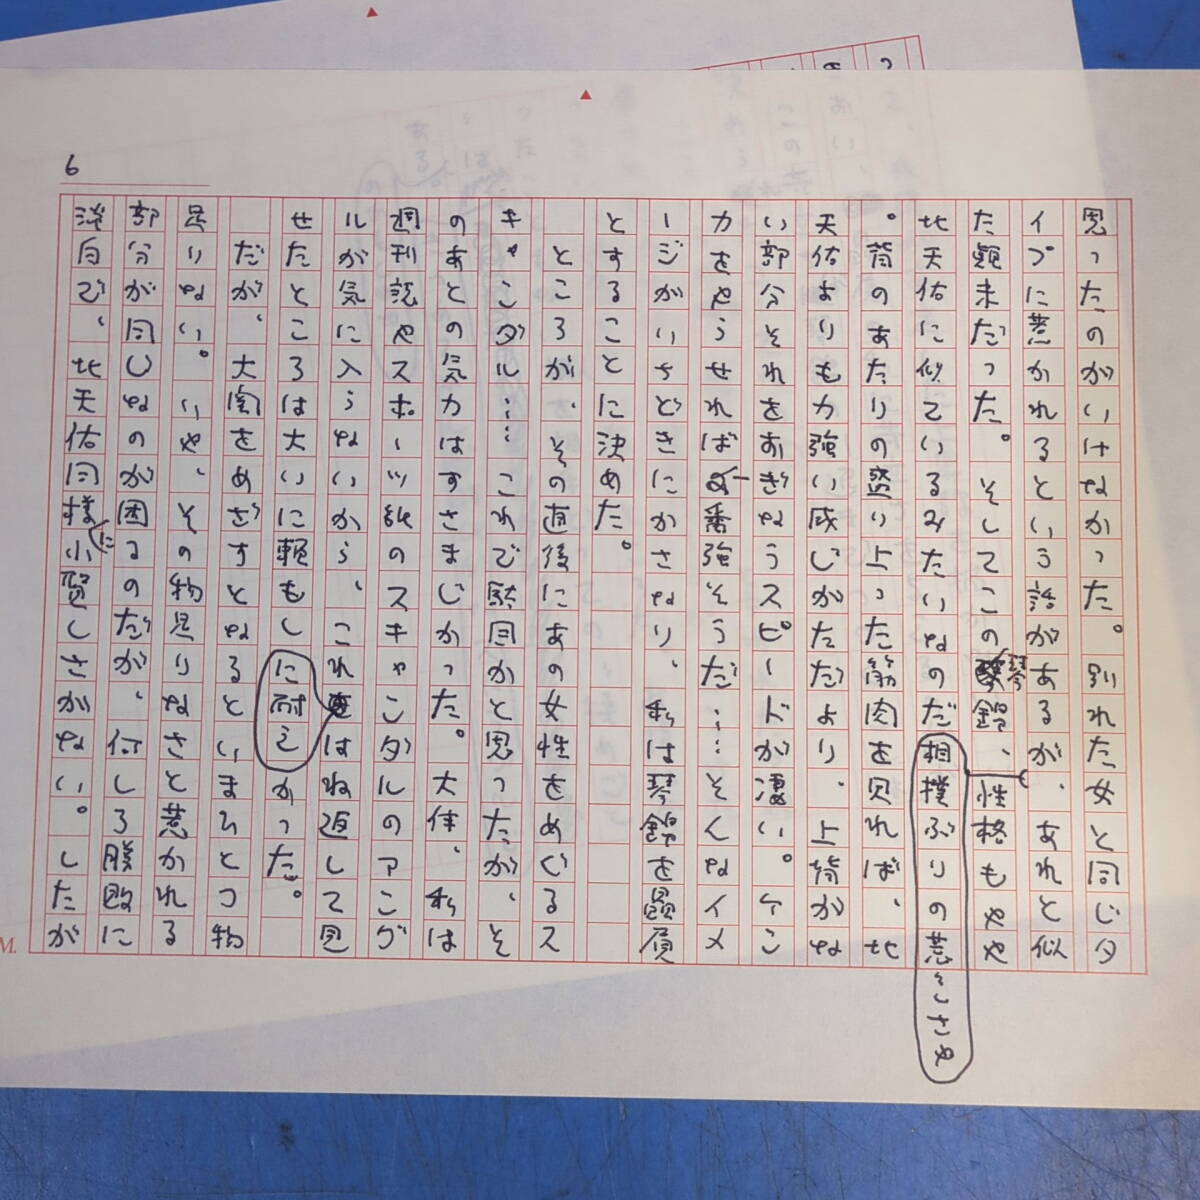 6
思ったのがいけなかった。別れた女と同じタ
イプに惹かれるという話があるが、あれと似
た顛末だった。そしてこの琴錦、相撲ぶりの荒々しさや性格もやや
北天佑に似ているみたいなのだ
。背のあたりの盛り上った筋肉を見れば、北
天佑よりも力強い感じがただより、上背がな
い部分それをおぎなうスピードが凄い。ケン
カをやらせれば一番強そうだ……そんなイメ
ージがいちどきにかさなり、私は琴錦を贔屓
とすることに決めた。
ところが、その直後にあの女性をめぐるス
キャンダル……これで駄目かと思ったが、そ
のあとの気力はすさまじかった。大体、私は
週刊誌やスポーツ紙のスキャンダルのアング
ルが気に入らないから、これに耐えはね返して見
せたところは大いに頼もしかった。
だが、大関をめざすとなるといまひとつ物
足りない。いや、その物足りなさと惹かれる
部分が同じなのが困るのだが、何しろ勝敗に
淡白で、北天佑同様に小賢しさがない。したが